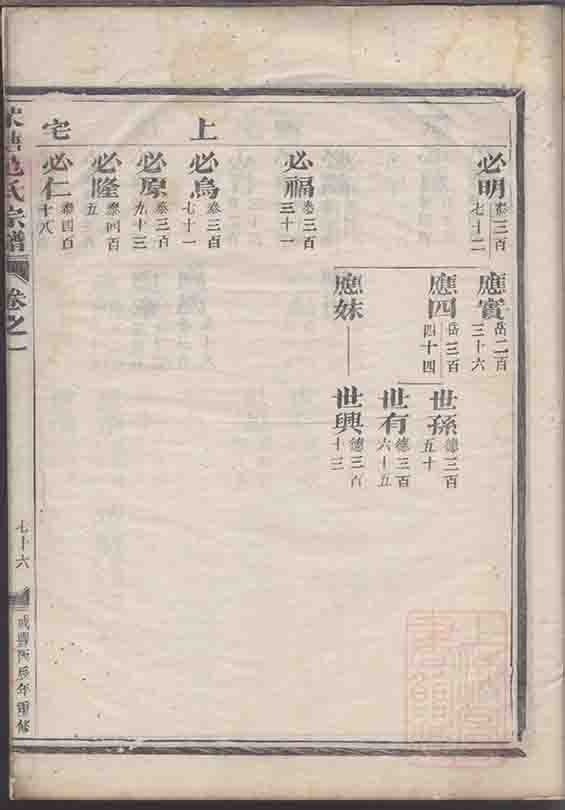 必明 泰三百七十二
應實 岳二百三十六
應四 岳三百四十四
世孫 德三百五十
世有 德三百六十五
應妹
世興 德三百十三
必福 泰三百三十一
上
必鳥 泰三百七十一
必厚 泰三百九十三
必隆 泰四百五
宅
必仁 泰四百十八
氏宗譜
卷之一
七十六
咸豐丙辰年重修